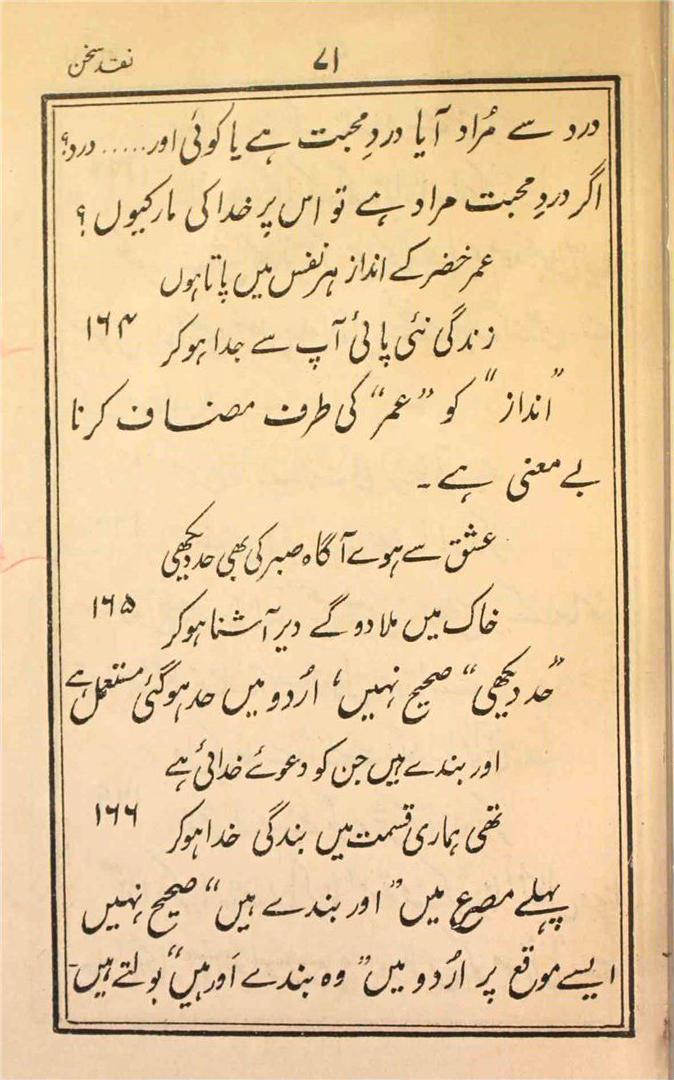 نقد سخن
۷۱
درد سے مُراد آیا دردِ محبت ہے یا کوئی اور..... درد؟
اگر دردِ محبت مراد ہے تو اس پر خدا کی مار کیوں؟
عمر خضر کے انداز ہر نفس میں پاتا ہوں
زندگی نئی پائی آپ سے جدا ہو کر ۱۶۴
”انداز“ کو ”عمر“ کی طرف مضاف کرنا
بے معنی ہے۔
عشق سے ہوے آگاہ صبر کی بھی حد دیکھی
خاک میں ملا دو گے دیر آشنا ہو کر ۱۶۵
”حد دیکھی“ صحیح نہیں، اُردو میں حد ہو گئی مستعمل ہے
اور بندے ہیں جن کو دعوےٰ خدائی ہے
تھی ہماری قسمت میں بندگی خدا ہو کر ۱۶۶
پہلے مصرع میں ”اور بندے ہیں“ صحیح نہیں
ایسے موقع پر اُردو میں ”وہ بندے اَور ہیں“ بولتے ہیں۔